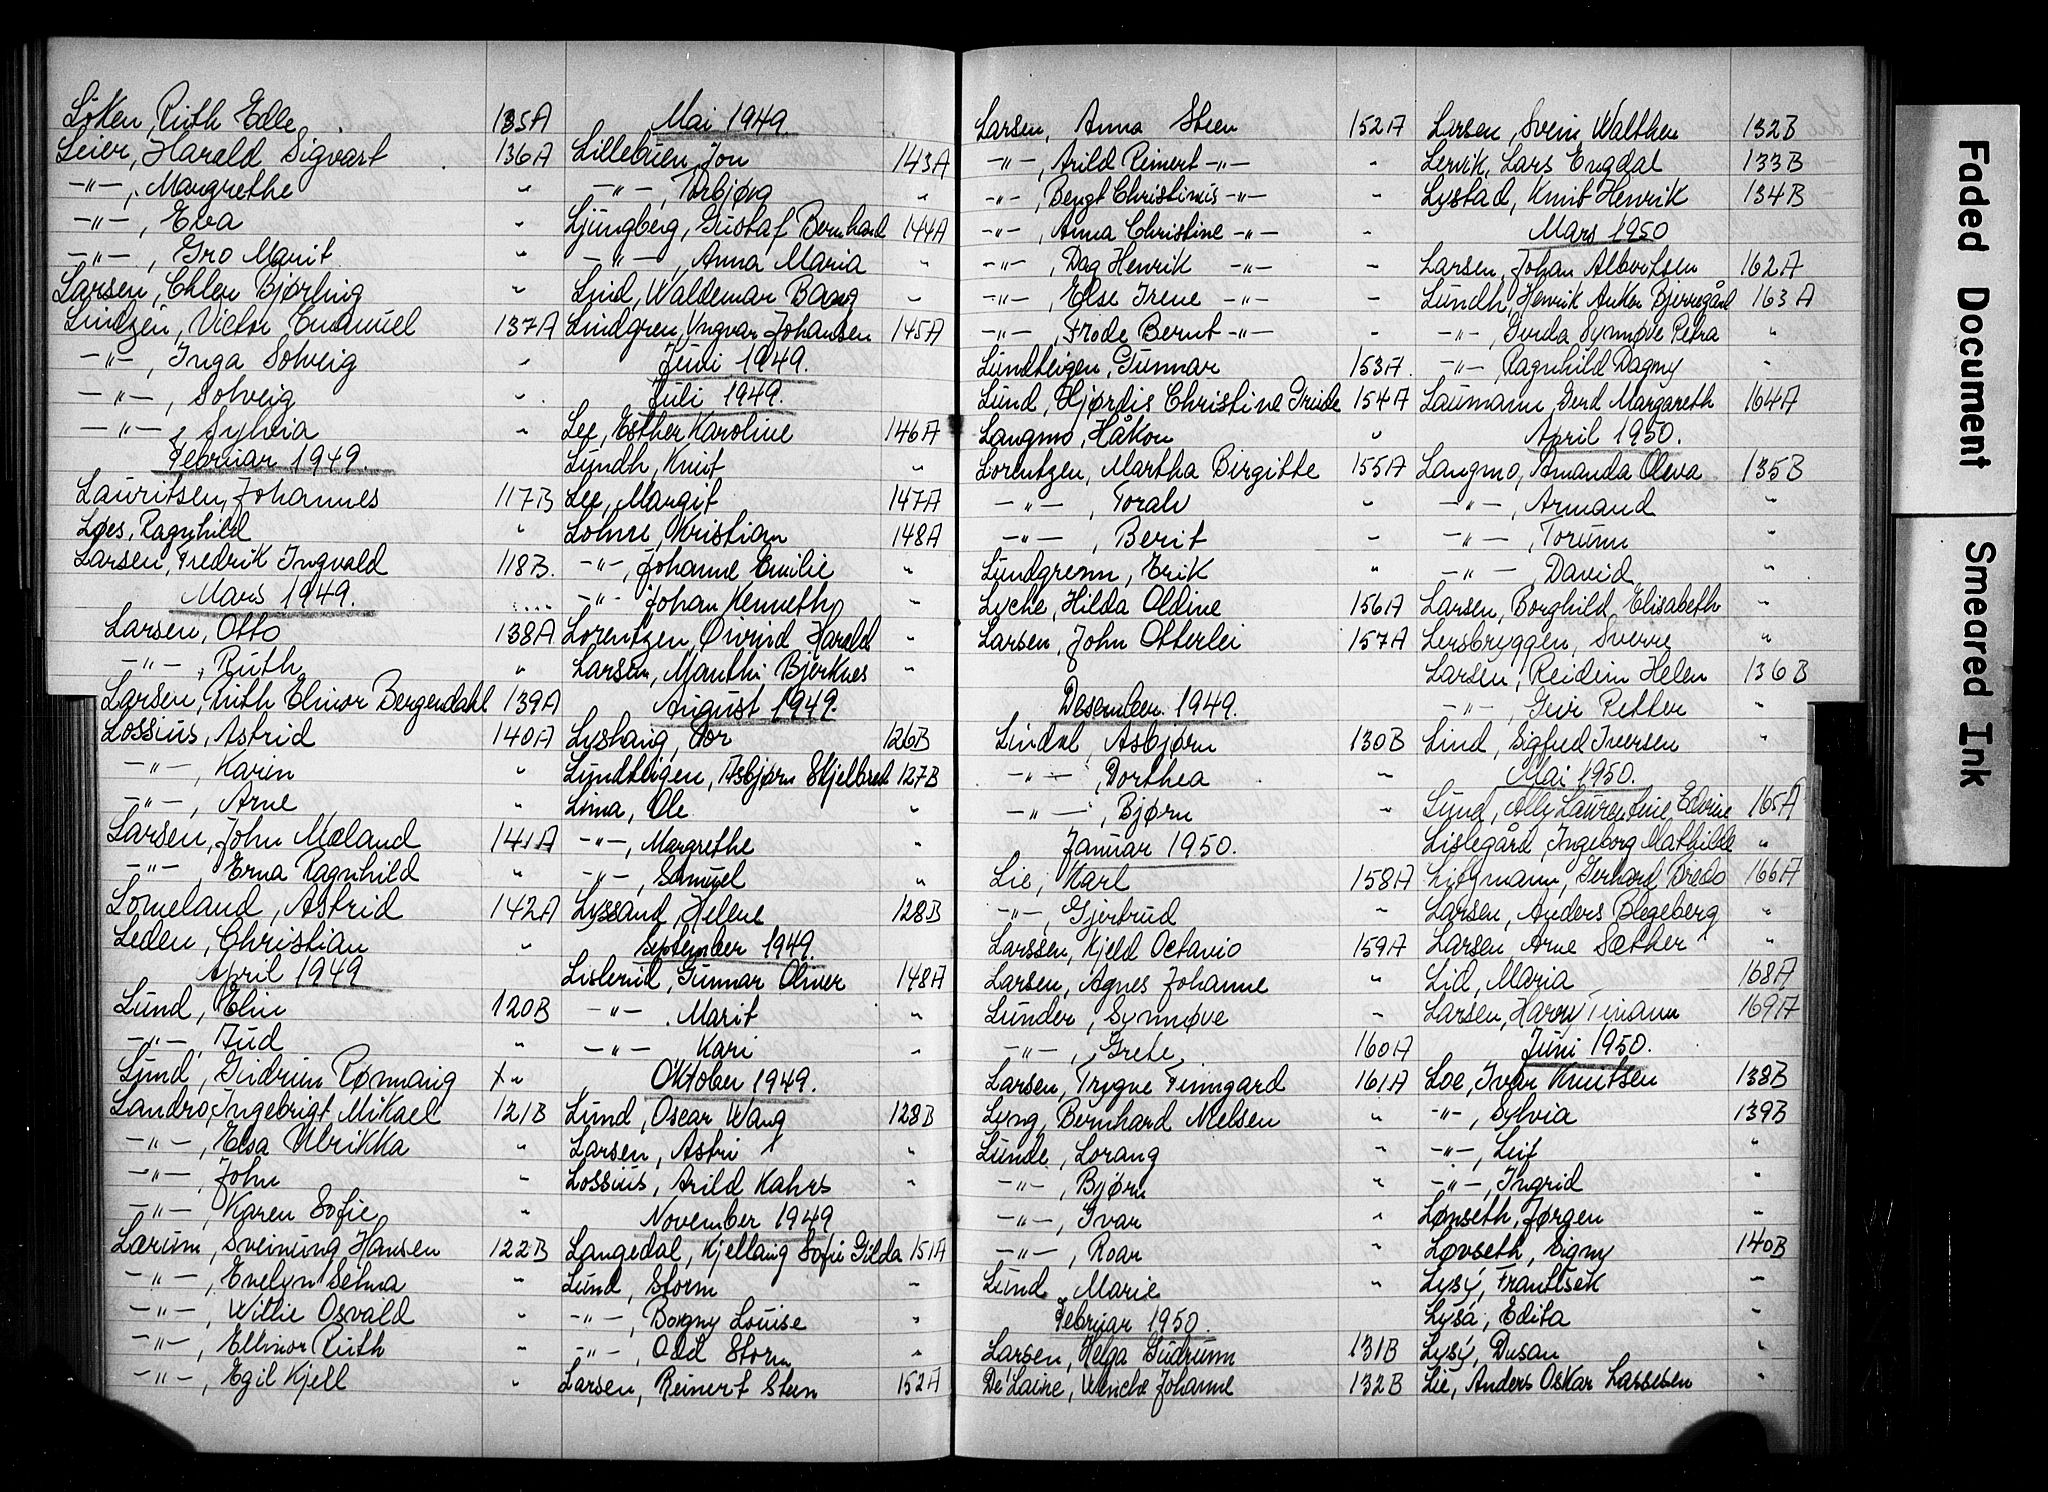 Löken, Ruth Edle 135A
Leier, Harald Sigvart 136A
-"-, Margrethe "
-"-, Eva "
-"-, Gro Marit "
Larsen, Ehlen Bjørling "
Lintzén, Victor Emanuel 137A
-"-, Inga Solveig "
-"-, Solveig "
-"-, Sylvia "
Februar 1949.
Lauritsen, Johannes 117B
Løes, Ragnhild "
Larsen, Fredrik Ingvald 118B.
Mars 1949.
Larsen, Otto 138A
-"-, Ruth "
Larsen, Ruth Elinor Bergendahl 139A
Lossius, Astrid 140A
-"-, Karin "
-"-, Arne "
Larsen, John Mæland 141A
-"-, Erna Ragnhild "
Lomeland, Astrid 142A
Leden, Christian "
April 1949
Lund, Elin 120B
-"-, Aud "
Lund, Gudrun Rønnaug x "
Landro, Ingebrigt Mikael 121B
-"-, Elsa Ulrikka "
-"-, John "
-"-, Karen Sofie "
Lærum, Sveinung Hansen 122B
-"-, Evelyn Selma "
-"-, Willie Osvald "
-"-, Ellinor Ruth "
-"-, Egil Kjell "
Mai 1949.
Lillebuen, Jon 143A
-"-, Torbjørg "
Ljungberg, Gustaf Bernhard 144A
-"-, Anna Maria "
Lind, Waldemar Baag "
Lindgren, Yngvar Johansen 145A
Juni 1949.
Juli 1949.
Lee, Esther Karoline 146A
Lundh, Knut "
Lee, Margit 147A
Lohne, Kristian 148A
-"-, Johanne Emilie "
-"- Johan Kenneth "
Lorentzen, Øivind Harald "
Larsen, Manthi Bjerknes "
August 1949.
Lyshaug, Tor 126B
Lundteigen, Asbjørn Skjelbred 127B
Lima, Ole "
-"-, Margrethe "
-"-, Samuel "
Lyssand, Helene 128B
September 1949.
Lislerud, Gunnar Oliver 148A
-"- Marit "
-"- Kari "
Oktober 1949.
Lund, Oscar Wang 128B
Larsen, Astri "
Lossius, Arild Kahrs "
November 1949
Langedal, Kjellaug Sofie Gilda 151A
Lund, Storm "
-"-, Borgny Louise "
-"-, Odd Storm "
Larsen, Reinert Steen 152A
Larsen, Anna Steen 152A
-"-, Arild Reinert -"- "
-"-, Bengt Christinus -"-
-"-, Anna Christine -"- "
-"-, Dag Henrik -"- "
-"-, Else Irene -"- "
-"-, Frode Bernt -"- "
Lundteigen, Gunnar 153A.
Lund, Hjørdis Christine Trude 154A
Langmo, Håkon "
Lorentzen, Martha Birgitte 155A
-"-, Toralv "
-"-, Berit "
Lundgrenn, Erik "
Lyche, Hilda Oldine 156A
Larsen, John Otterlei 157A
Desember 1949.
Lindal, Asbjørn 130B
-"-, Dorthea "
-"-, Bjørn "
Januar 1950.
Lie, Karl 158A
-"-, Gjertrud "
Larssen, Kjeld Octavio 159A
Larsen, Agnes Johanne "
Lunder, Synnøve "
-"-, Grete 160A
Larsen, Trygve Finngard 161A
Lyng, Bernhard Nielsen "
Lunde, Lorang "
-"-, Bjørn "
-"-, Ivar "
-"-, Roar "
Lund, Marie "
Februar 1950.
Larsen, Helga Gudrunn 131B
De'Laine, Wenche Johanne 132B
Larsen, Svein Walther 132B
Lervik, Lars Engdal 133B
Lystad, Knut Henrik 134B
Mars 1950
Larsen, Johan Albertsen 162A
Lundh, Henrik Anker Bjerregård 163A
-"-, Gerda Synnøve Petra "
-"-, Ragnhild Dagny "
Laumann, Gerd Margareth 164A
April 1950.
Langmo, Amanda Oleva 135B
-"-, Armand "
-"-, Torunn "
-"-, David "
Larsen, Borghild Elisabeth "
Lersbryggen, Sverre "
Larsen, Reidun Helen 136B
-"-, Geir Petter "
Lind, Sigfred Iversen "
Mai 1950.
Lund, Ally Laurentine Edvine 165A
Lislegård, Ingeborg Mathilde "
Litzmann, Gerhard Bredo 166A
Larsen, Anders Blegeberg "
Larsen Arne Sæther "
Lid, Maria 168A
Larsen, Harry Timann 169A
Juni 1950.
Loe, Ivar Knutsen 138B
-"-, Sylvia 139B
-"-, Leif "
-"-, Ingrid "
Lønseth, Jørgen "
Løvseth, Signy 140B
Lysý, Frantisek "
Lysá, Edita "
Lysý, Dusan "
Lie, Anders Oskar Lassesen "
Faded Document
Smeared Ink